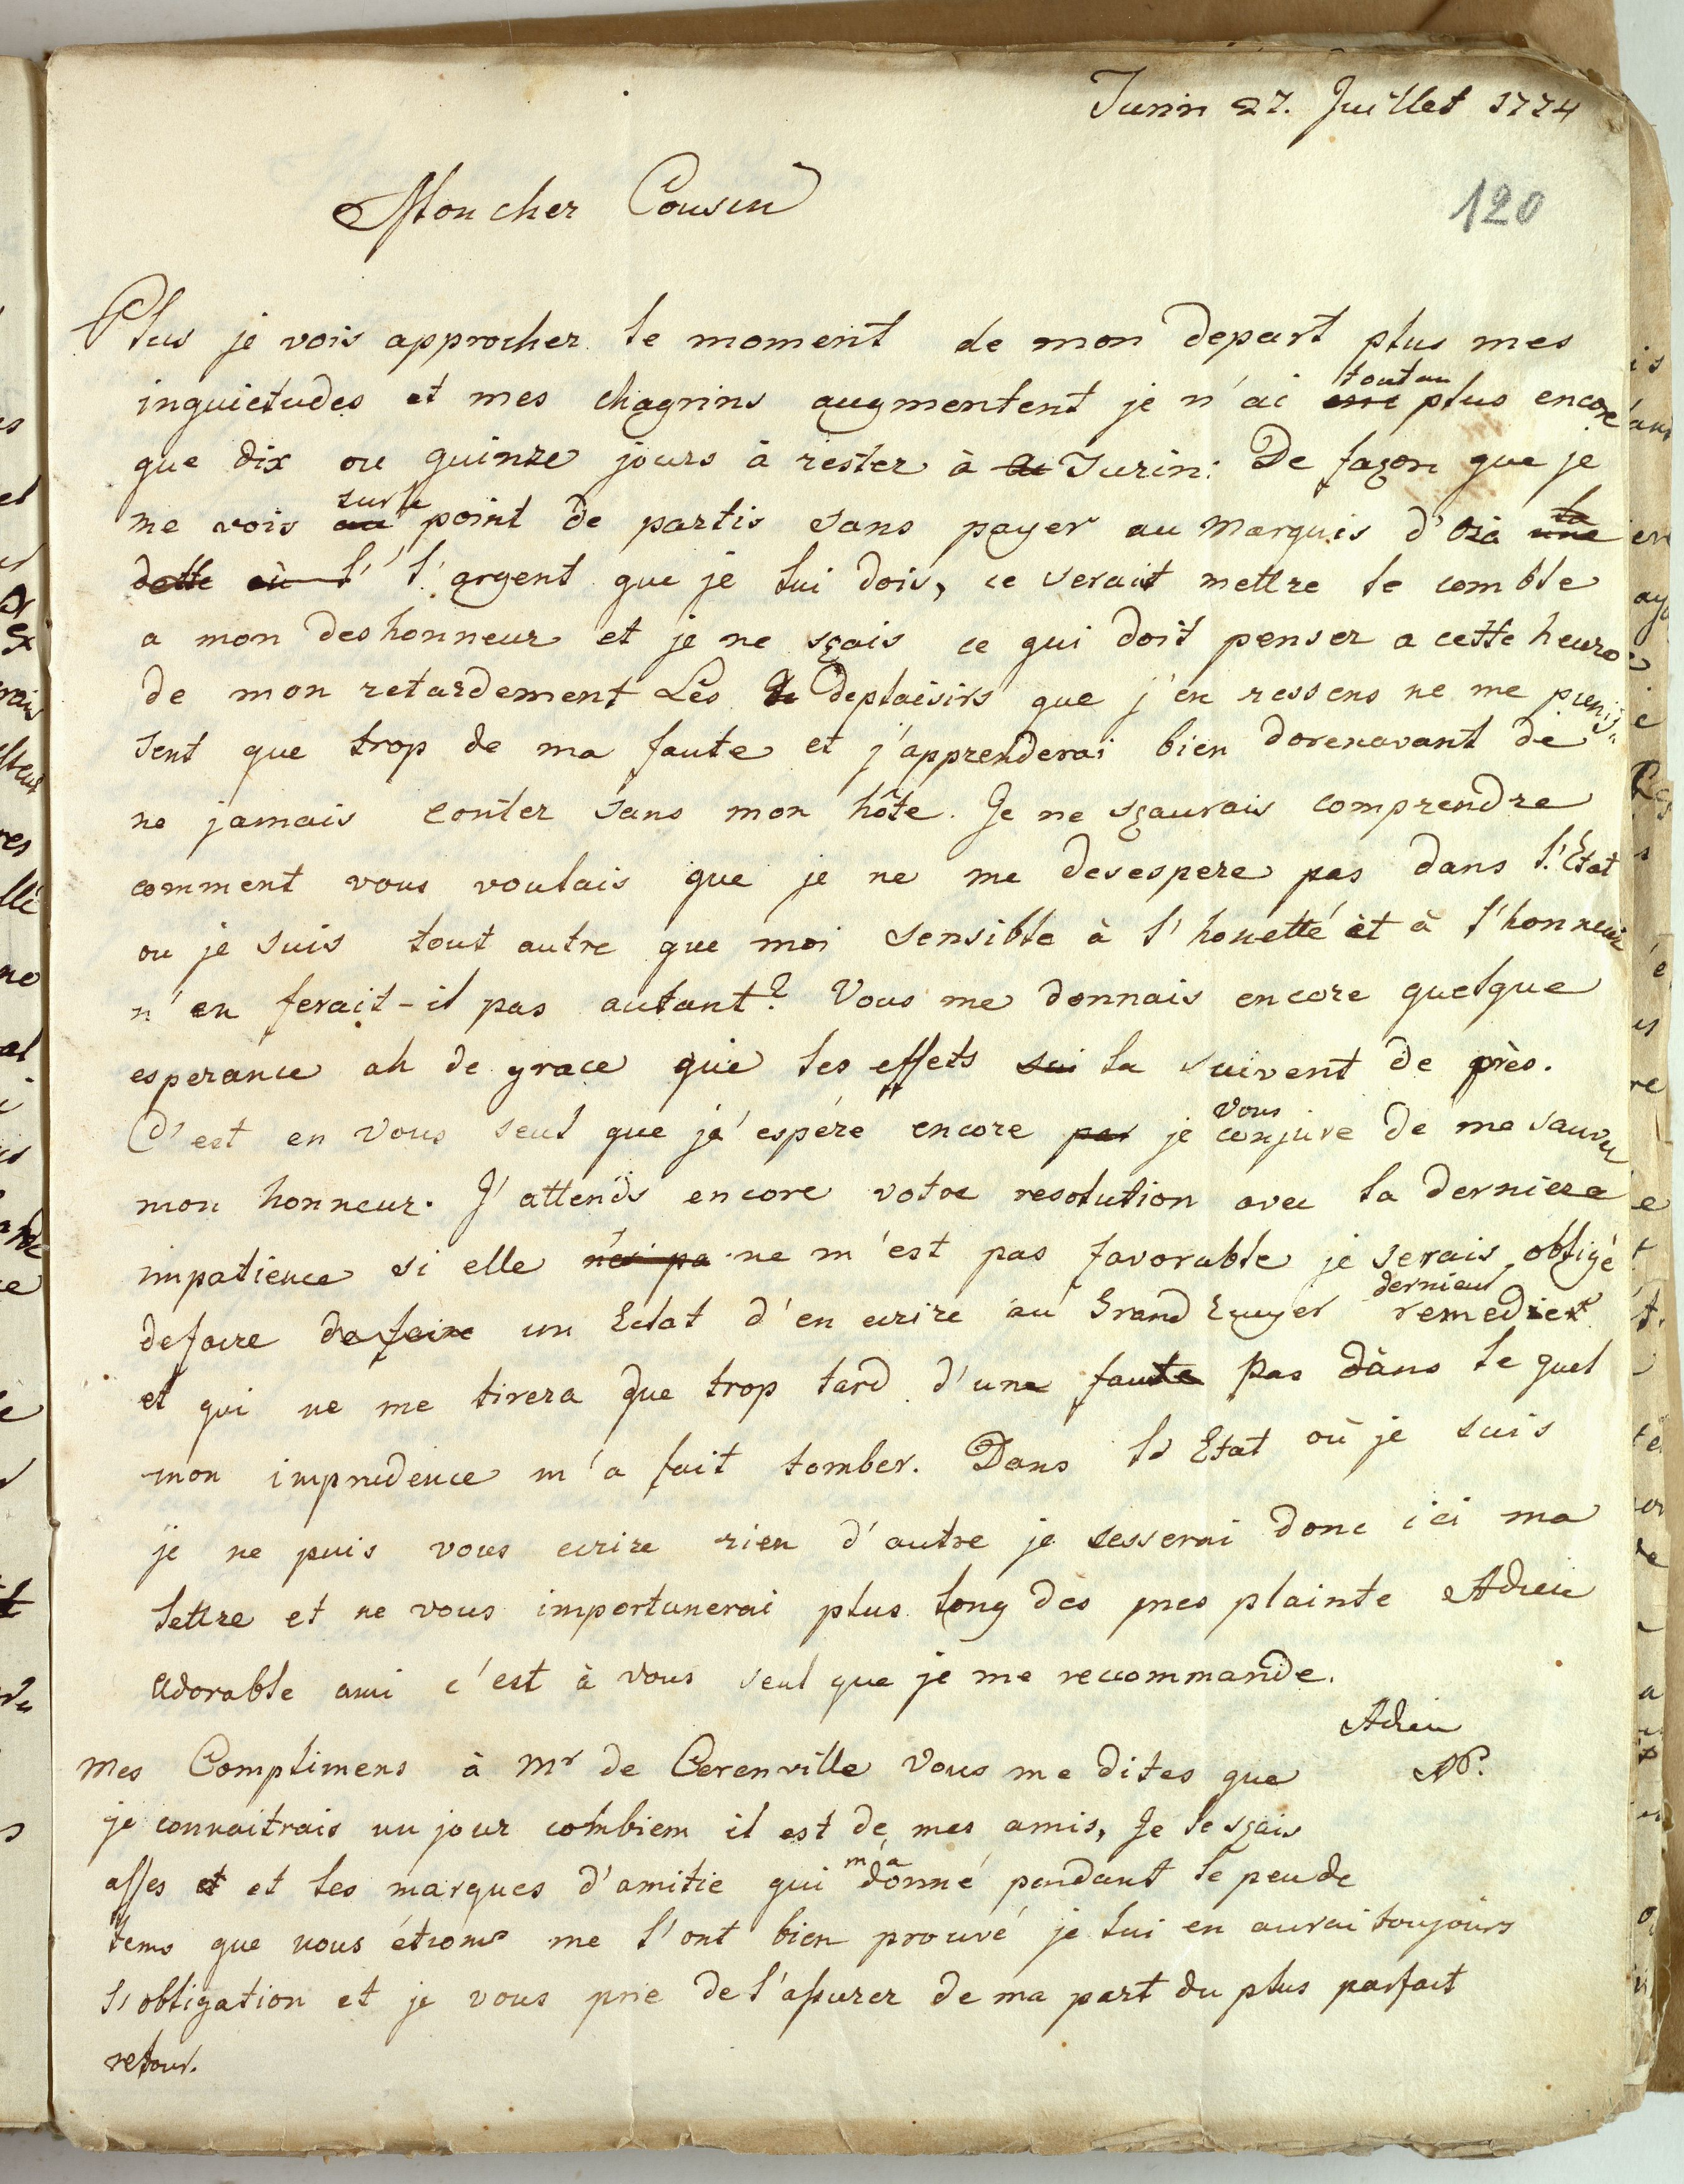 Turin 27. Juillet 1774
120
Mon cher Cousin
Plus je vois approcher le moment de mon depart plus mes
inquietudes et mes chagrins augmentent je n'ai tout au plus encore
que dix ou quinze jours à rester à Turin: De façon que je
me vois sur le point de partis sans payer au Marquis d'Ozà la
dette où l' l'argent que je lui dois, ce serait mettre le comble
a mon deshonneur et je ne sçais ce qui doit penser a cette heure
de mon retardement Les deplaisirs que j'en ressens ne me punis-
sent que trop de ma faute et j'apprenderai bien dorenavant de
ne jamais conter sans mon hôte. Je ne sçaurais comprendre
comment vous voulais que je ne me desespere pas dans l'Etat
ou je suis tout autre que moi sensible à l'honetté èt à l'honneur
n'en ferait-il pas autant? Vous me donnais encore quelque
esperance ah de grace que les effets sui la suivent de près.
C'est en vous seul que je' espére encore par je vous conjure de me sauver
mon honneur. J'attends encore votre resolution avec la derniere
impatience si elle n'es pa ne m'est pas favorable je serais obligé
defaire de faire un Eclat d'en ecrire au Grand Ecuyer dernieur remedier
et qui ne me tirera que trop tard d'une faute pas dans le quel
mon imprudence m'a fait tomber. Dans l'Etat où je suis
je ne puis vous ecrire rien d'autre je sesserai donc ici ma
lettre et ne vous importunerai plus long des mes plainte Adieu
adorable ami c'est à vous seul que je me reccommande.
Adieu
NP.
Mes Complimens à Mr de Cerenville Vous me dites que
je connaitrais un jour combiem il est de mes amis, Je le sçais
asses et et les marques d'amitie qui m'a donné pendant le peu de
tems que nous étions me l'ont bien prouvé je lui en aurai toujours
l'obligation et je vous prie de l'assurer de ma part du plus parfait
retour.